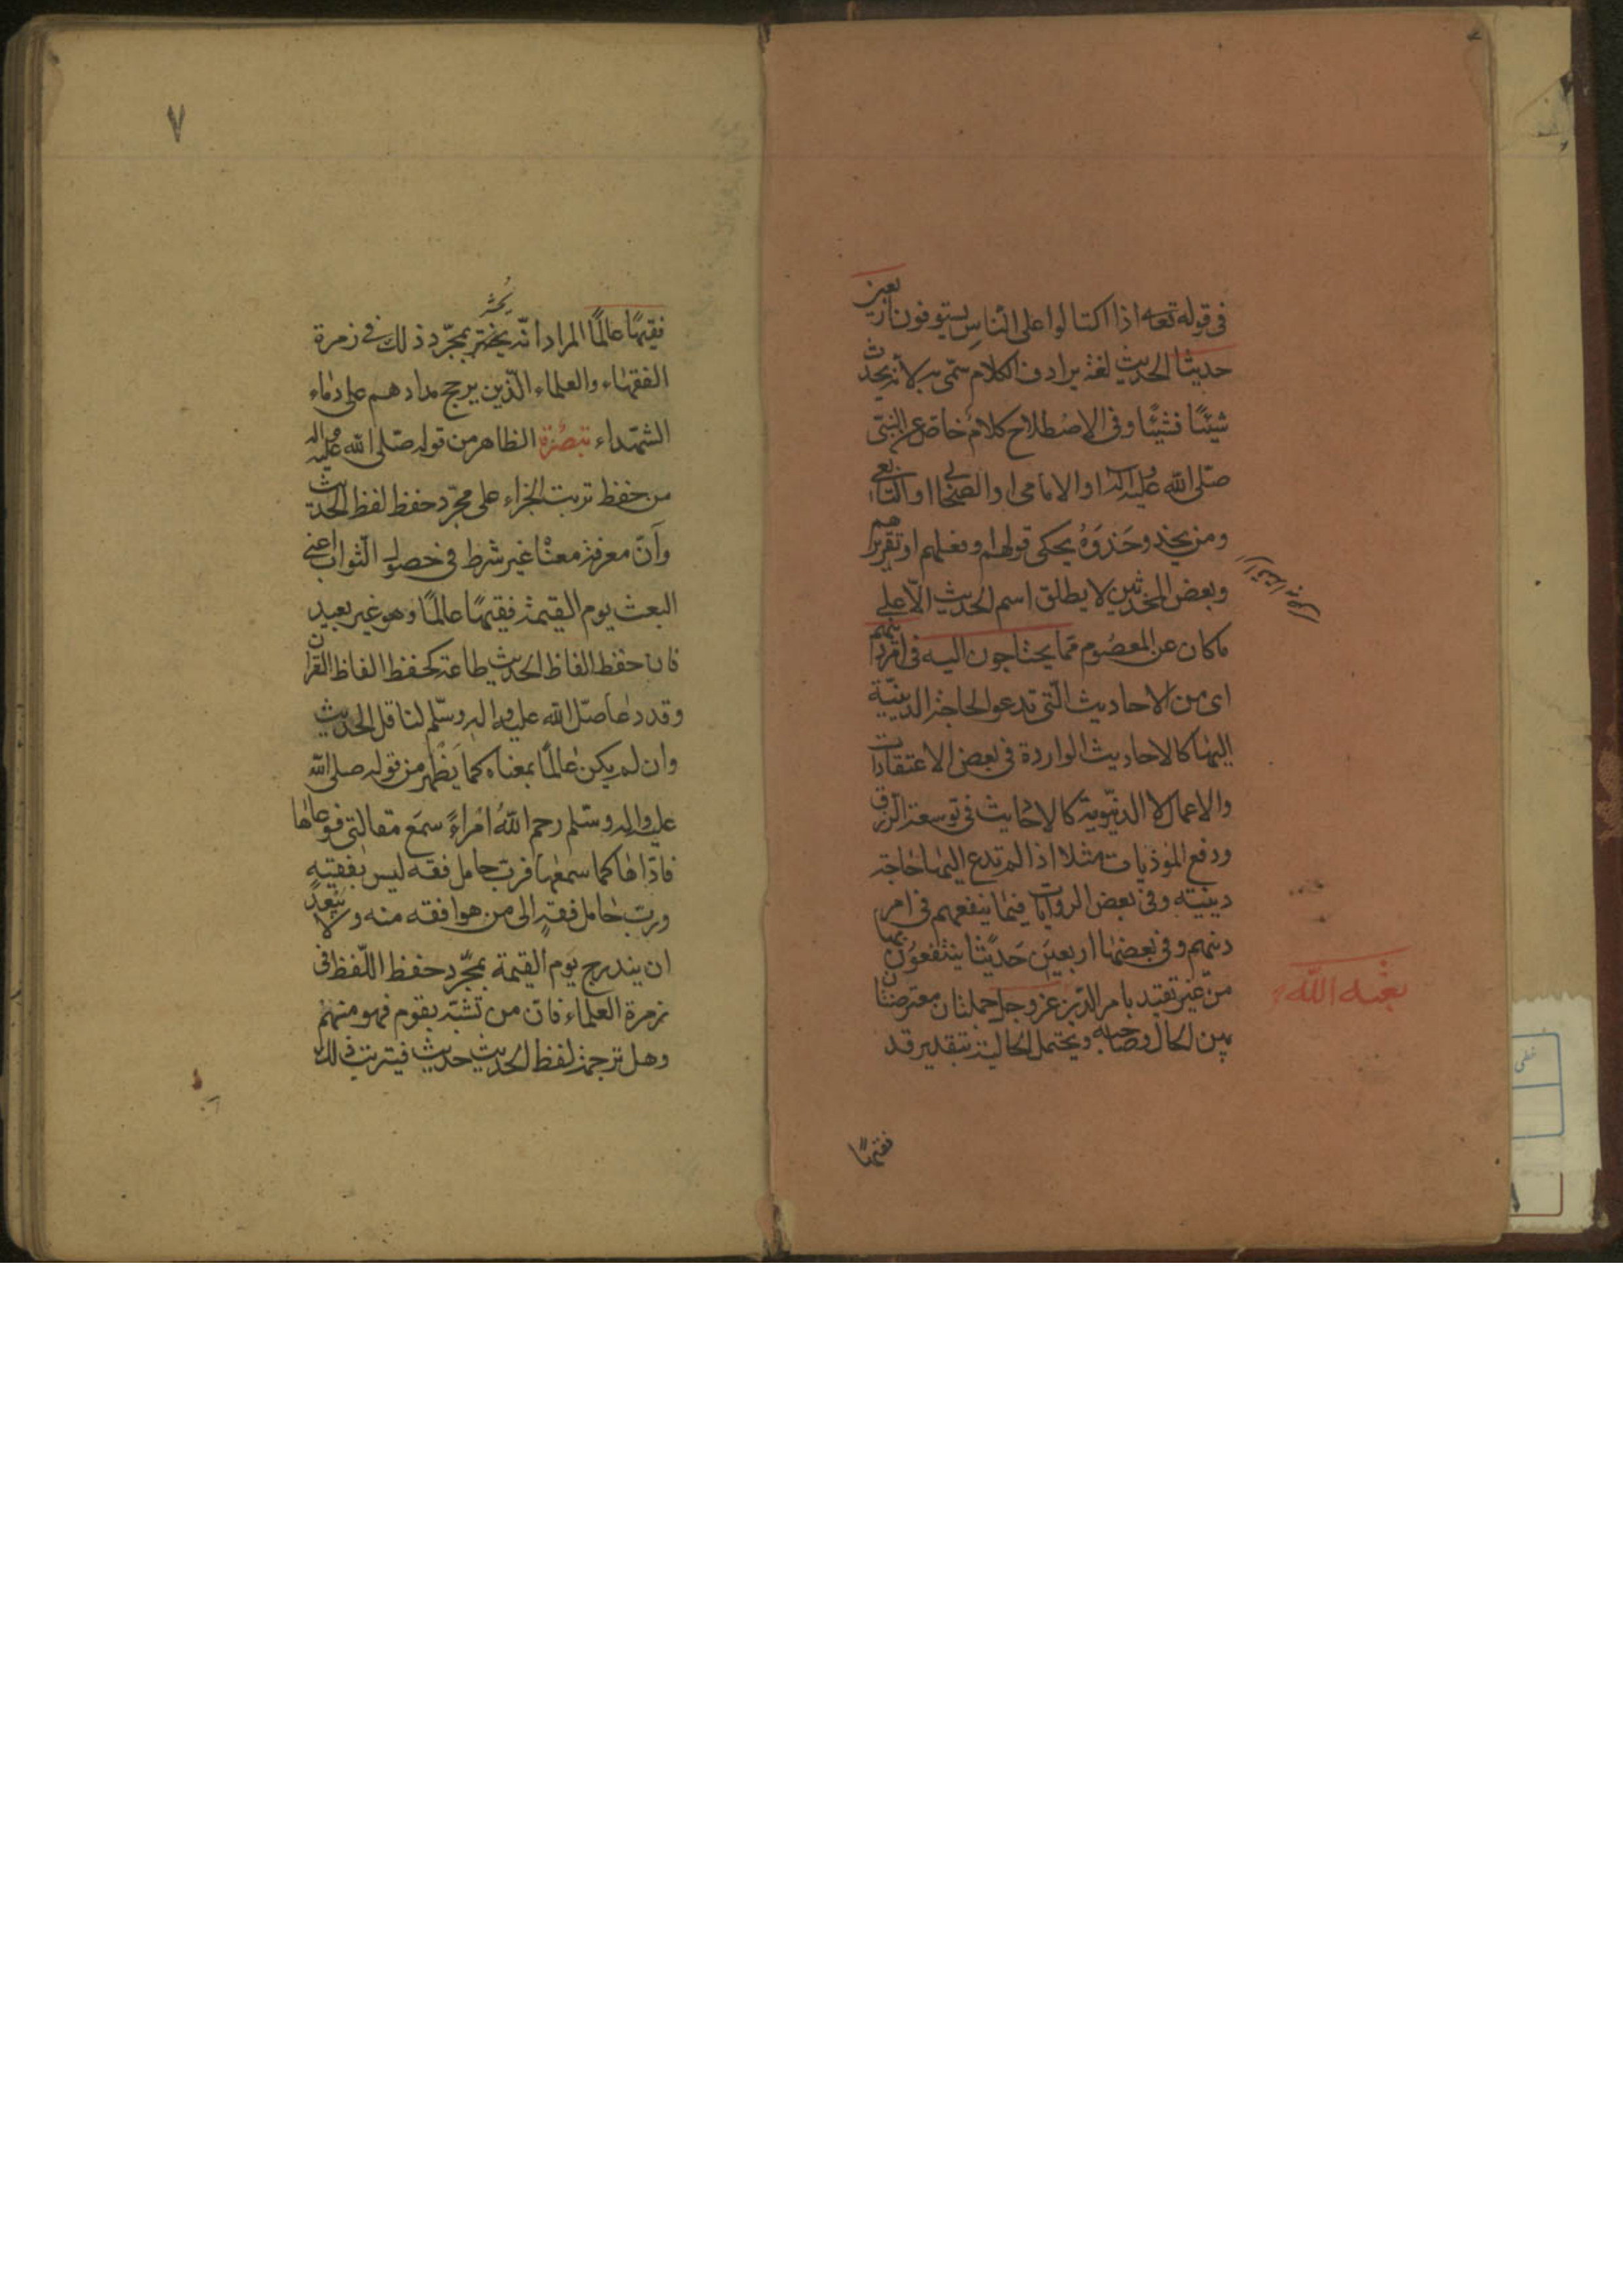 في قوله تعه اذا اكتالوا على الناس يستوفون اربعين
حديثا الحديث لغة يرادف الكلام سمّى به لانه يحدث
شيئًا فشيئًا وفى الاصطلاح كلام خاصّ عن النبىّ
صلى الله عليه واله او الامام او الصحابى او التابعى
ومن يحذو حَذوَهُ يحكى قولهم او فعلهم او تقريرهم
وبعض المحدثين لا يطلق اسم الحديث الّا على
ما كان عن المعصوم مما يحتاجون اليه فى امر دينهم
اى من الاحاديث الّتى تدعو الحاجة الدينيّة
اليها كالاحاديث الواردة فى بعض الاعتقادات
والاعمال لا الدنيوية كالاحاديث فى توسعة الرزق
ودفع الموذيات مثلا اذا لم تدع اليها حاجة
دينية وفى بعض الروايات فيما ينفعهم فى امر
دينهم وفى بعضها اربعين حَديثا ينتفعون بها
من غير تقييد بامر الدين عز وجل جملتان معترضتان
بين الحال وصاحبه ويحتمل الحالية بتقدير قد
بعثه الله
فقيهًا
٧
فقيهًا عالمًا المراد انّه يحشر بمجرّد ذلك في زمرة
يُحشر
الفقهاء والعلماء الّذين يرجح مدادهم على دماء
الشهداء تبصرة الظاهر من قوله صلى الله عليه واله
من حفظ ترتب الجزاء على مجرّد حفظ لفظ الحديث
وأنّ معرفة معناه غير شرط فى حصول الثواب اعنى
البعث يوم القيمة فقيهًا عالمًا وهو غير بعيد
فان حفظ الفاظ الحديث طاعة كحفظ الفاظ القران
وقد دعا صلّى الله عليه واله وسلّم لناقل الحديث
وان لم يكن عالمًا بمعناه كما يَظهر من قوله صلى الله
عليه واله وسلم رحم اللهُ امراءً سمَع مقالتى فوعاها
فادّاها كما سمعها فرب حامل فقه ليس بفقيه
ورب حامل فقهٍ الى من هو افقه منه ولا يبعد
ان يندرج يوم القيمة بمجّرد حفظ اللّفظ فى
زمرة العلماء فانّ من تشبّه بقوم فهو منهم
وهل ترجمة لفظ الحديث حديث فيترتب ذلك